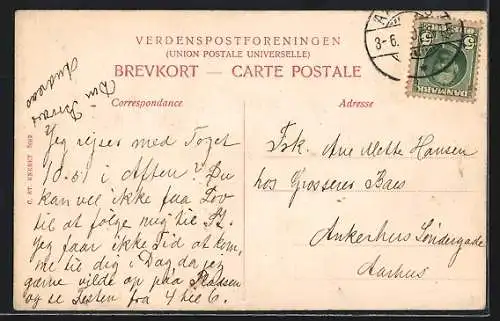 VERDENSPOSTFORENINGEN
(UNION POSTALE UNIVERSELLE)
BREVKORT — CARTE POSTALE
Correspondance
Adresse
Jeg rejser med Toget
10.51 i Aften? Du
kan vel ikke faa Lov
til at følge mig til St.
Jeg faar ikke Tid at kom,
me til dig i Dag da jeg
gærne vilde op paa Pladsen
og se Festen fra 4 til 6.
Din
Andreas
Frk. Ane Mette Hansen
hos Grosserer Baes
Ankerhus Søndergade
Aarhus
3-6
DANMARK
5